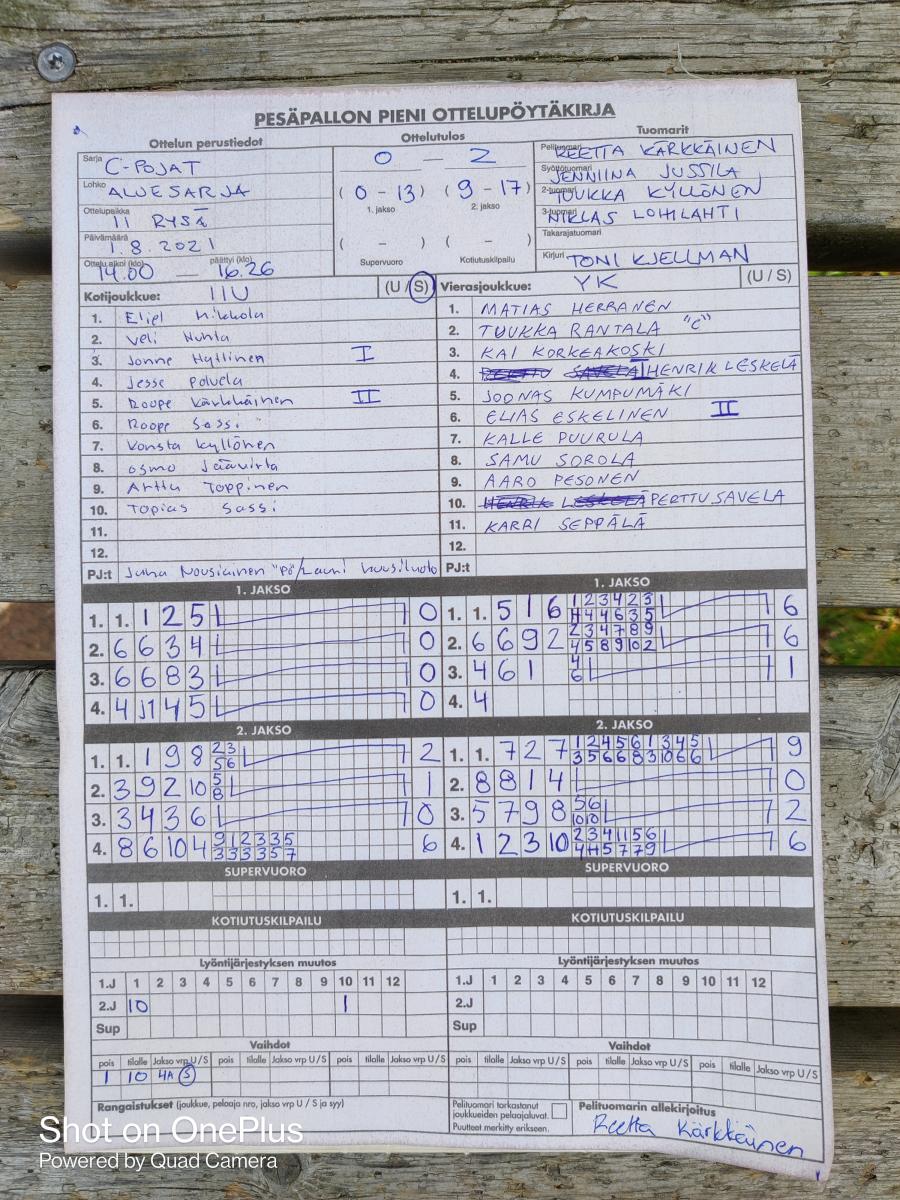 PESÄPALLON PIENI OTTELUPÖYTÄKIRJA
Ottelun perustiedot
Ottelutulos
Tuomarit
Sarja C-POJAT
Lohko ALUESARJA
Ottelupaikka II RYSÄ
Päivämäärä 1.8.2021
Ottelu alkoi (klo) 14.00 — päättyi (klo) 16.26
0 — 2
( 0 - 13 ) ( 9 - 17 )
1. jakso 2. jakso
( - ) ( - )
Supervuoro Kotiutuskilpailu
Pelituomari REETTA KÄRKKÄINEN
Syöttötuomari JENNIINA JUSSILA
2-tuomari TUUKKA KYLLÖNEN
3-tuomari NIKLAS LOHILAHTI
Takarajatuomari
Kirjuri TONI KJELLMAN
Kotijoukkue: IIU (U / S)
1. Eliel Mikkola
2. Veli Huhta
3. Jonne Hyttinen I
4. Jesse Polvela
5. Roope Kärkkäinen II
6. Roope Sassi
7. Konsta Kyllönen
8. Osmo Jäävirta
9. Arttu Toppinen
10. Topias Sassi
11.
12.
PJ:t Juha Nousiainen "PÖ"/Lauri
Vierasjoukkue: YK (U / S)
1. MATIAS HERRANEN
2. TUUKKA RANTALA "C"
3. KAI KORKEAKOSKI
4. PERTTU SAVELA I HENRIK LESKELÄ
5. JOONAS KUMPUMÄKI
6. ELIAS ESKELINEN II
7. KALLE PUURULA
8. SAMU SOROLA
9. AARO PESONEN
10. HENRIK LESKELÄ PERTTU SAVELA
11. KARRI SEPPÄLÄ
12.
PJ:t
1. JAKSO
1. 1. 1 2 5 0
2. 6 6 3 4 0
3. 6 6 8 3 0
4. 4 J1 4 5 0
1. JAKSO
1. 1. 5 1 6 1 2 3 4 2 3 6
4 4 4 6 3 5
2. 6 6 9 2 2 3 4 7 8 9 6
4 5 8 9 10 2
3. 4 6 1 4 1
6
4. 4
2. JAKSO
1. 1. 1 9 8 2 3 2
5 6
2. 3 9 2 10 5 1
8
3. 3 4 3 6 0
4. 8 6 10 4 9 1 2 3 3 5 6
3 3 3 3 5 7
2. JAKSO
1. 1. 7 2 7 1 2 4 5 6 1 3 4 5 9
3 5 6 6 8 3 10 6 6
2. 8 8 1 4 0
3. 5 7 9 8 5 6 2
10 10
4. 1 2 3 10 2 3 4 11 5 6 6
4 4 5 7 7 9
SUPERVUORO
1. 1.
SUPERVUORO
1. 1.
KOTIUTUSKILPAILU
KOTIUTUSKILPAILU
Lyöntijärjestyksen muutos
1.J 1 2 3 4 5 6 7 8 9 10 11 12
2.J 10 1
Sup
Lyöntijärjestyksen muutos
1.J 1 2 3 4 5 6 7 8 9 10 11 12
2.J
Sup
Vaihdot
pois tilalle Jakso vrp U/S pois tilalle Jakso vrp U/S pois tilalle Jakso vrp U/S
1 10 4A S
Vaihdot
pois tilalle Jakso vrp U/S pois tilalle Jakso vrp U/S pois tilalle Jakso vrp U/S
Rangaistukset (joukkue, pelaaja nro, jakso vrp U / S ja syy)
Pelituomari tarkastanut
joukkueiden pelaajaluvat.
Puutteet merkitty erikseen.
Pelituomarin allekirjoitus
Reetta Kärkkäinen
Shot on OnePlus
Powered by Quad Camera